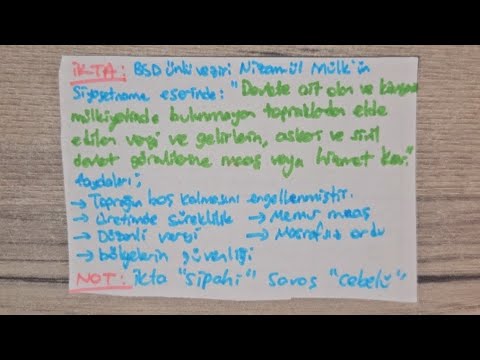 İKTA: BSD ünlü veziri Nizamül Mülk'ün
Siyasetname eserinde: "Devlete ait olan ve
mülkiyetinde bulunmayan topraklardan elde
edilen vergi ve gelirlerin, askeri ve sivil
devlet görevlilerine maaş veya hizmet
faydaları;
→ Toprağın boş kalmasını engellenmiştir.
→ Üretimde süreklilik → Memur maaş
→ Düzenli vergi → Masrafsız ordu
→ bölgelerin güvenliği
NOT: ikta "sipahi" savaş "cebelü"